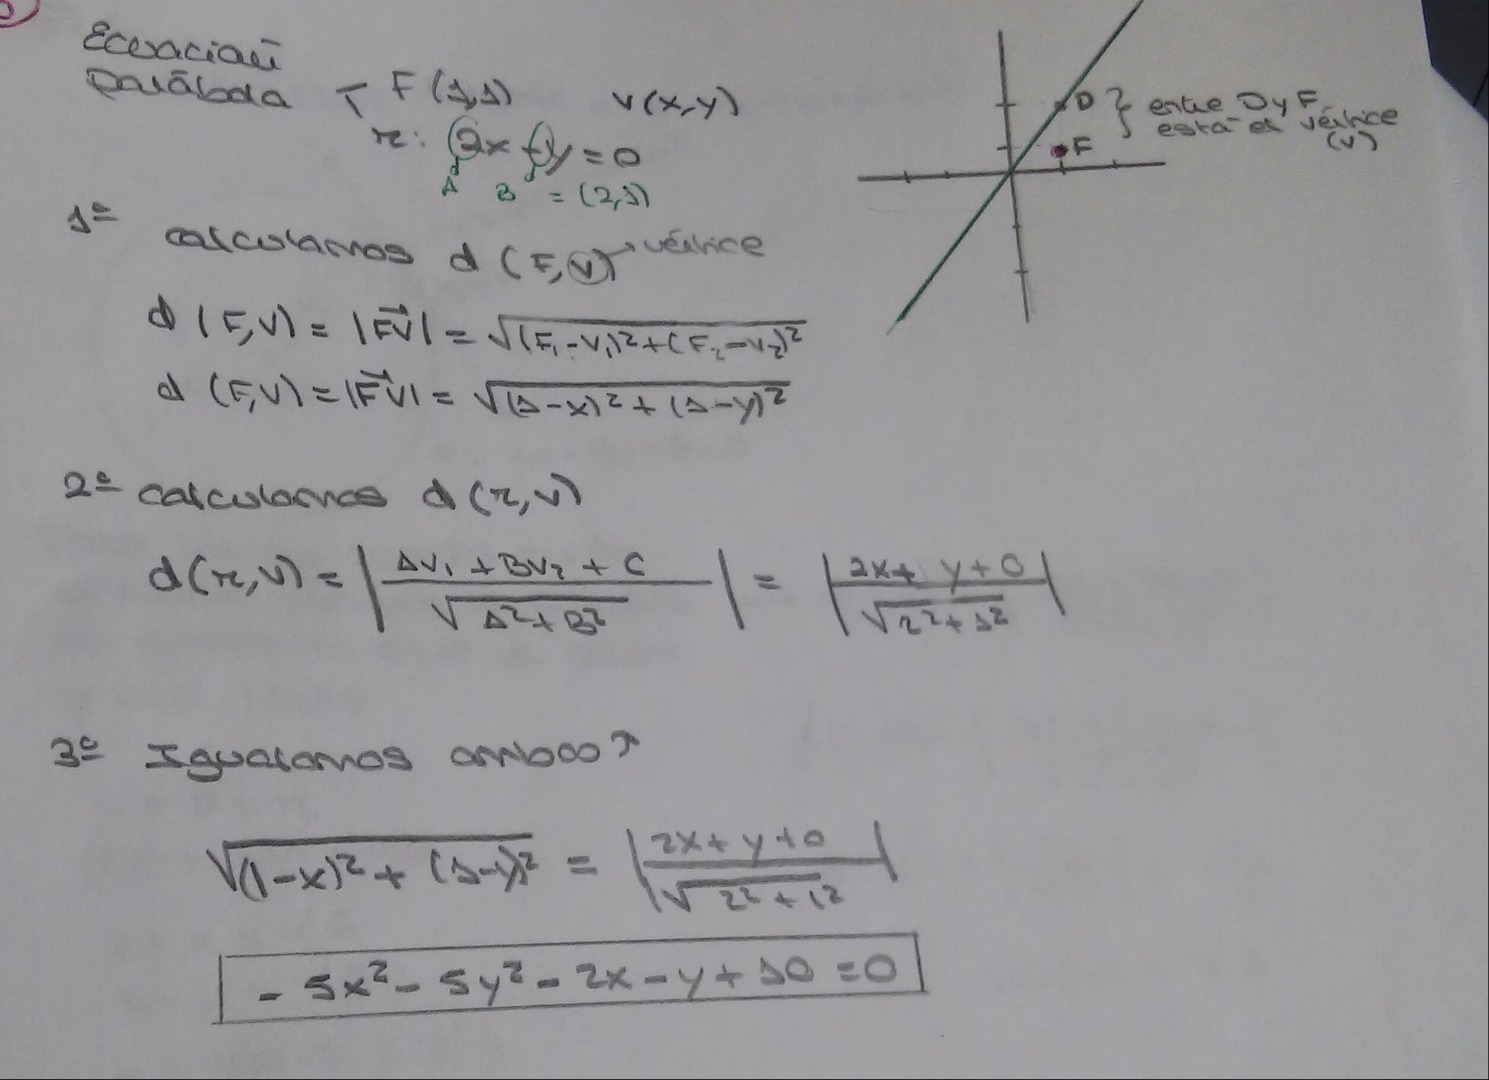 Ecuación
Parábola F(1,1) V(x,y)
r: 2x+y=0
A B = (2,1)
D } entre D y F
está el vértice
(V)
F
1º calculamos d(F,V)→vértice
d(F,V) = |FV| = √(F₁-V₁)²+(F₂-V₂)²
d(F,V) = |FV| = √(1-x)²+(1-y)²
2º calculamos d(r,V)
d(r,V) = |AV₁+BV₂+C / √A²+B²| = |2x+ y+0 / √2²+1²|
3º Igualamos ambos
√(1-x)²+(1-y)² = |2x+y+0 / √2²+1²|
-5x²-5y²-2x-y+10=0